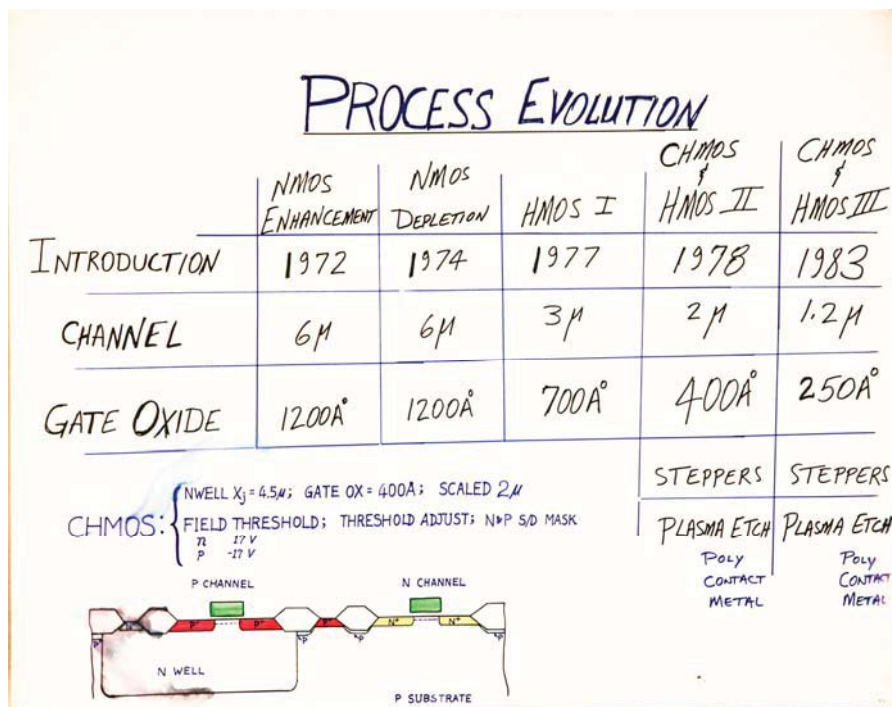 PROCESS EVOLUTION
NMOS ENHANCEMENT
NMOS DEPLETION
HMOS I
CHMOS & HMOS II
CHMOS & HMOS III
INTRODUCTION 1972 1974 1977 1978 1983
CHANNEL 6µ 6µ 3µ 2µ 1.2µ
GATE OXIDE 1200A° 1200A° 700A° 400A° 250A°
STEPPERS STEPPERS
PLASMA ETCH PLASMA ETCH
POLY POLY
CONTACT CONTACT
METAL METAL
CHMOS:
NWELL Xj = 4.5µ; GATE OX = 400A; SCALED 2µ
FIELD THRESHOLD; THRESHOLD ADJUST; N&P S/D MASK
n 17 V
P -17 V
P CHANNEL N CHANNEL
P+ P+ N+ N+
P P P P
N WELL
P SUBSTRATE